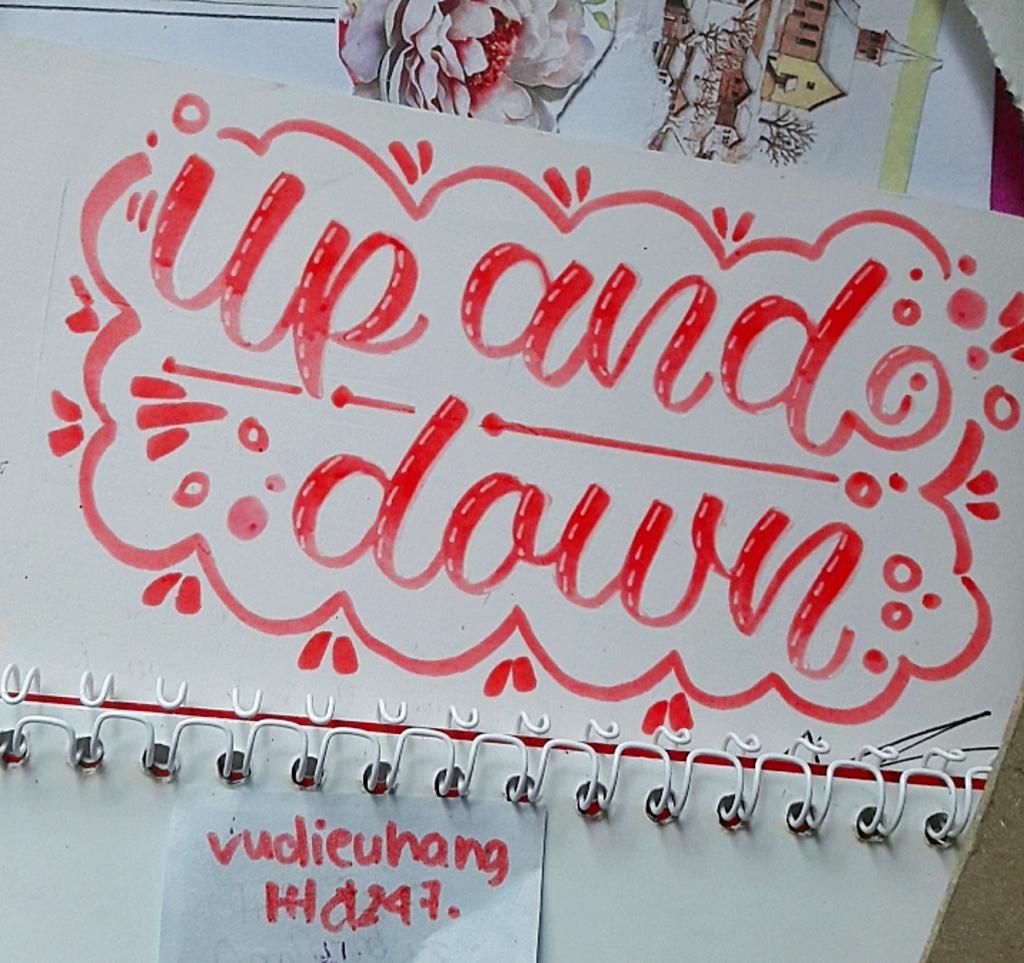 up and
down
vudieuhang
Hd247.